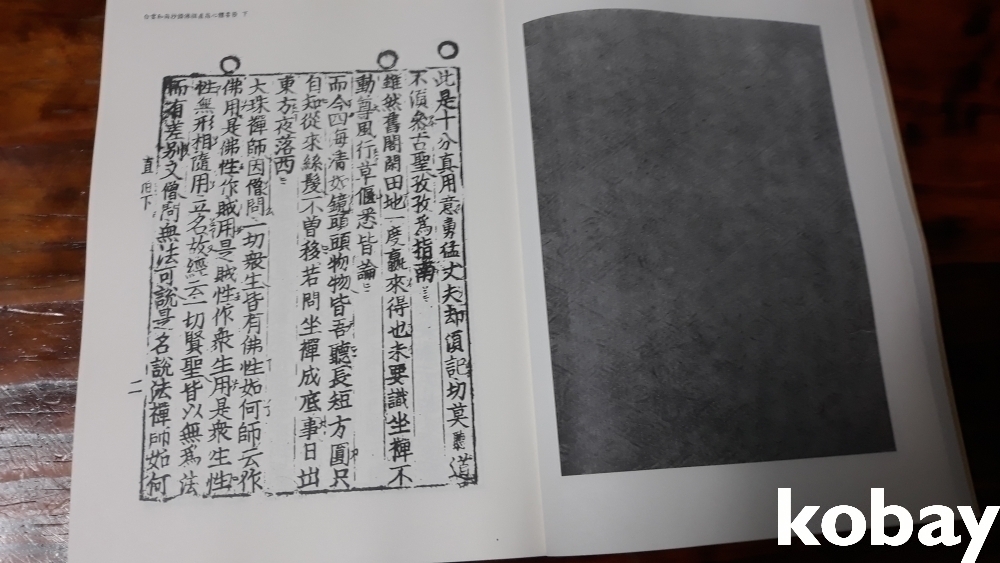 白雲和尚抄錄佛祖直指心體要節 下
此是十分真用意勇猛丈夫却湏記切莫聽道
不湏叅古聖孜孜爲指南
雖然舊閣閑田地一度贏來得也未要識坐禪不
動尊風行草偃悉皆論
而今四海清如鏡頭頭物物皆吾聽長短方圓只
自知從來絲髮不曾移若問坐禪成底事日出
東方夜落西
大珠禪師因僧問一切衆生皆有佛性如何師云作
佛用是佛性作賊用是賊性作衆生用是衆生性
性無形相隨用立名故經云一切賢聖皆以無爲法
而有差别又僧問無法可說是名說法禪師如何
直 下
二
kobay